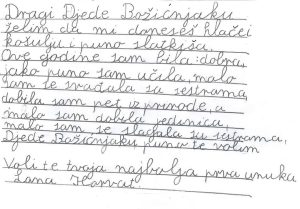 Dragi Djede Božićnjaku
želim da mi doneseš hlače i
košulju i puno slatkiša.
Ove godine sam bila dobra
jako puno sam učila, malo
sam se svađala sa sestrama,
dobila sam pet iz prirode, a
malo sam dobila jedinica,
malo sam se slagala sa sestrama,
Djede Božićnjaku puno te volim
Voli te tvoja najbolja prva unuka
Lana Horvat